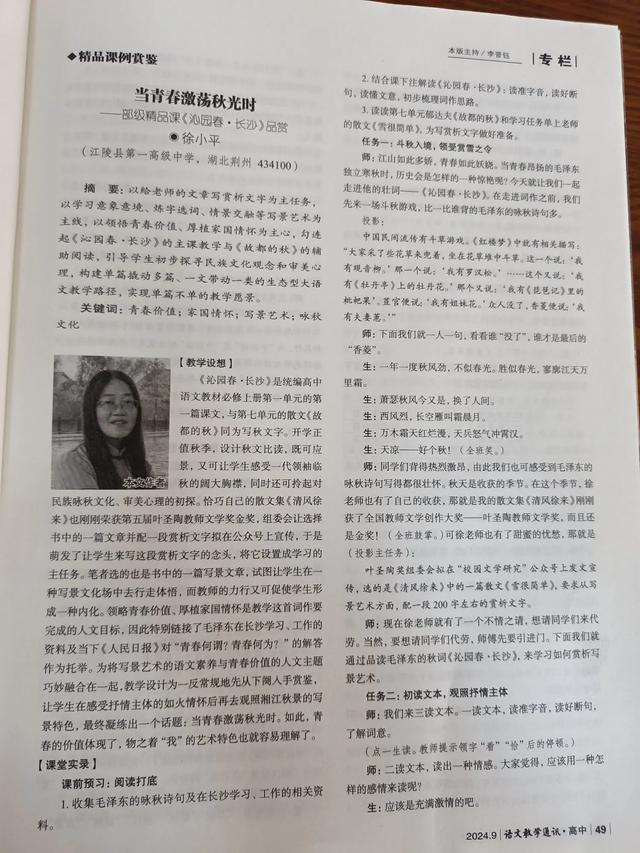 ◆精品课例赏鉴
本版主持/李晋钰
专 栏
当青春激荡秋光时
——部级精品课《沁园春·长沙》品赏
◉徐小平
(江陵县第一高级中学，湖北荆州 434100)
摘 要：以给老师的文章写赏析文字为主任务，
以学习意象意境、炼字选词、情景交融等写景艺术为
主线，以领悟青春价值、厚植家国情怀为主心，勾连
起《沁园春·长沙》的主课教学与《故都的秋》的辅
助阅读，引导学生初步探寻民族文化观念和审美心
理，构建单篇撬动多篇、一文带动一类的生态型大语
文教学路径，实现单篇不单的教学愿景。
关键词：青春价值；家国情怀；写景艺术；咏秋
文化
本文作者
【教学设想】
《沁园春·长沙》是统编高中
语文教材必修上册第一单元的第
一篇课文，与第七单元的散文《故
都的秋》同为写秋文字。开学正
值秋季，设计秋文比读，既可应
景，又可让学生感受一代领袖临
秋的阔大胸襟，同时还可拎起对
民族咏秋文化、审美心理的初探。恰巧自己的散文集《清风徐
来》也刚刚荣获第五届叶圣陶教师文学奖金奖，组委会让选择
书中的一篇文章并配一段赏析文字拟在公众号上宣传，于是
萌发了让学生来写这段赏析文字的念头，将它设置成学习的
主任务。笔者选的也是书中的一篇写景文章，试图让学生在一
种写景文化场中去行走体悟，而教师的力行又可促使学生形
成一种内化。领略青春价值、厚植家国情怀是教学这首词作要
完成的人文目标，因此特别链接了毛泽东在长沙学习、工作的
资料及当下《人民日报》对“青春何谓？青春何为？”的解答
作为托举。为将写景艺术的语文素养与青春价值的人文主题
巧妙融合在一起，教学设计为一反常规地先从下阕入手赏鉴，
让学生在感受抒情主体的如火情怀后再去观照湘江秋景的写
景特色，最终凝练出一个话题：当青春激荡秋光时。如此，青
春的价值体现了，物之着“我”的艺术特色也就容易理解了。
【课堂实录】
课前预习：阅读打底
1. 收集毛泽东的咏秋诗句及在长沙学习、工作的相关资
料。
2. 结合课下注解读《沁园春·长沙》：读准字音，读好断
句，读懂文意，初步梳理词作思路。
3. 读读第七单元郁达夫《故都的秋》和学习任务单上老师
的散文《雪很简单》，为写赏析文字做好准备。
任务一：斗秋入境，领受赏雪之令
师：江山如此多娇，青春如此妖娆。当青春昂扬的毛泽东
独立寒秋时，历史会是怎样的一种惊艳呢？今天就让我们一起
走进他的壮词——《沁园春·长沙》。在走进词作之前，我们
先来一场斗秋游戏，比一比谁背的毛泽东的咏秋诗句多。
投影：
中国民间流传有斗草游戏。《红楼梦》中就有相关描写：
“大家采了些花草来兜着，坐在花草堆中斗草。这一个说：‘我
有观音柳。’那一个说：‘我有罗汉松。’……这个又说：‘我
有《牡丹亭》上的牡丹花。’那个又说：‘我有《琵琶记》里的
枇杷果’。荳官便说：‘我有姐妹花。’众人没了，香菱便说：‘我
有夫妻蕙。’”
师：下面我们就一人一句，看看谁“没了”，谁才是最后的
“香菱”。
生：一年一度秋风劲，不似春光。胜似春光，寥廓江天万
里霜。
生：萧瑟秋风今又是，换了人间。
生：西风烈，长空雁叫霜晨月。
生：万木霜天红烂漫，天兵怒气冲霄汉。
生：天凉——好个秋！（全班笑。）
师：同学们背得热烈激昂，由此我们也可感受到毛泽东的
咏秋诗句写得都很壮怀。秋天是收获的季节。在这个季节，徐
老师也有了自己的收获，那就是我的散文集《清风徐来》刚刚
获了全国教师文学创作大奖——叶圣陶教师文学奖，而且还
是金奖！（全班鼓掌。）可徐老师也有了甜蜜的忧愁，那就是
（投影主任务）：
叶圣陶奖组委会拟在“校园文学研究”公众号上发文宣
传，选的是《清风徐来》中的一篇散文《雪很简单》，要求从写
景艺术方面，配一段 200 字左右的赏析文字。
师：现在徐老师就有了一个不情之请，想请同学们来代
劳。当然，要想请同学们代劳，师傅先要引进门。下面我们就
通过品读毛泽东的秋词《沁园春·长沙》，来学习如何赏析写
景艺术。
任务二：初读文本，观照抒情主体
师：我们来三读文本。一读文本，读准字音，读好断句，
了解词意。
（点一生读。教师提示领字“看”“恰”后的停顿。）
师：二读文本，读出一种情感。大家觉得，应该用一种怎
样的感情来读呢？
生：应该是充满激情的吧。
2024.9 | 语文教学通讯·高中 | 49